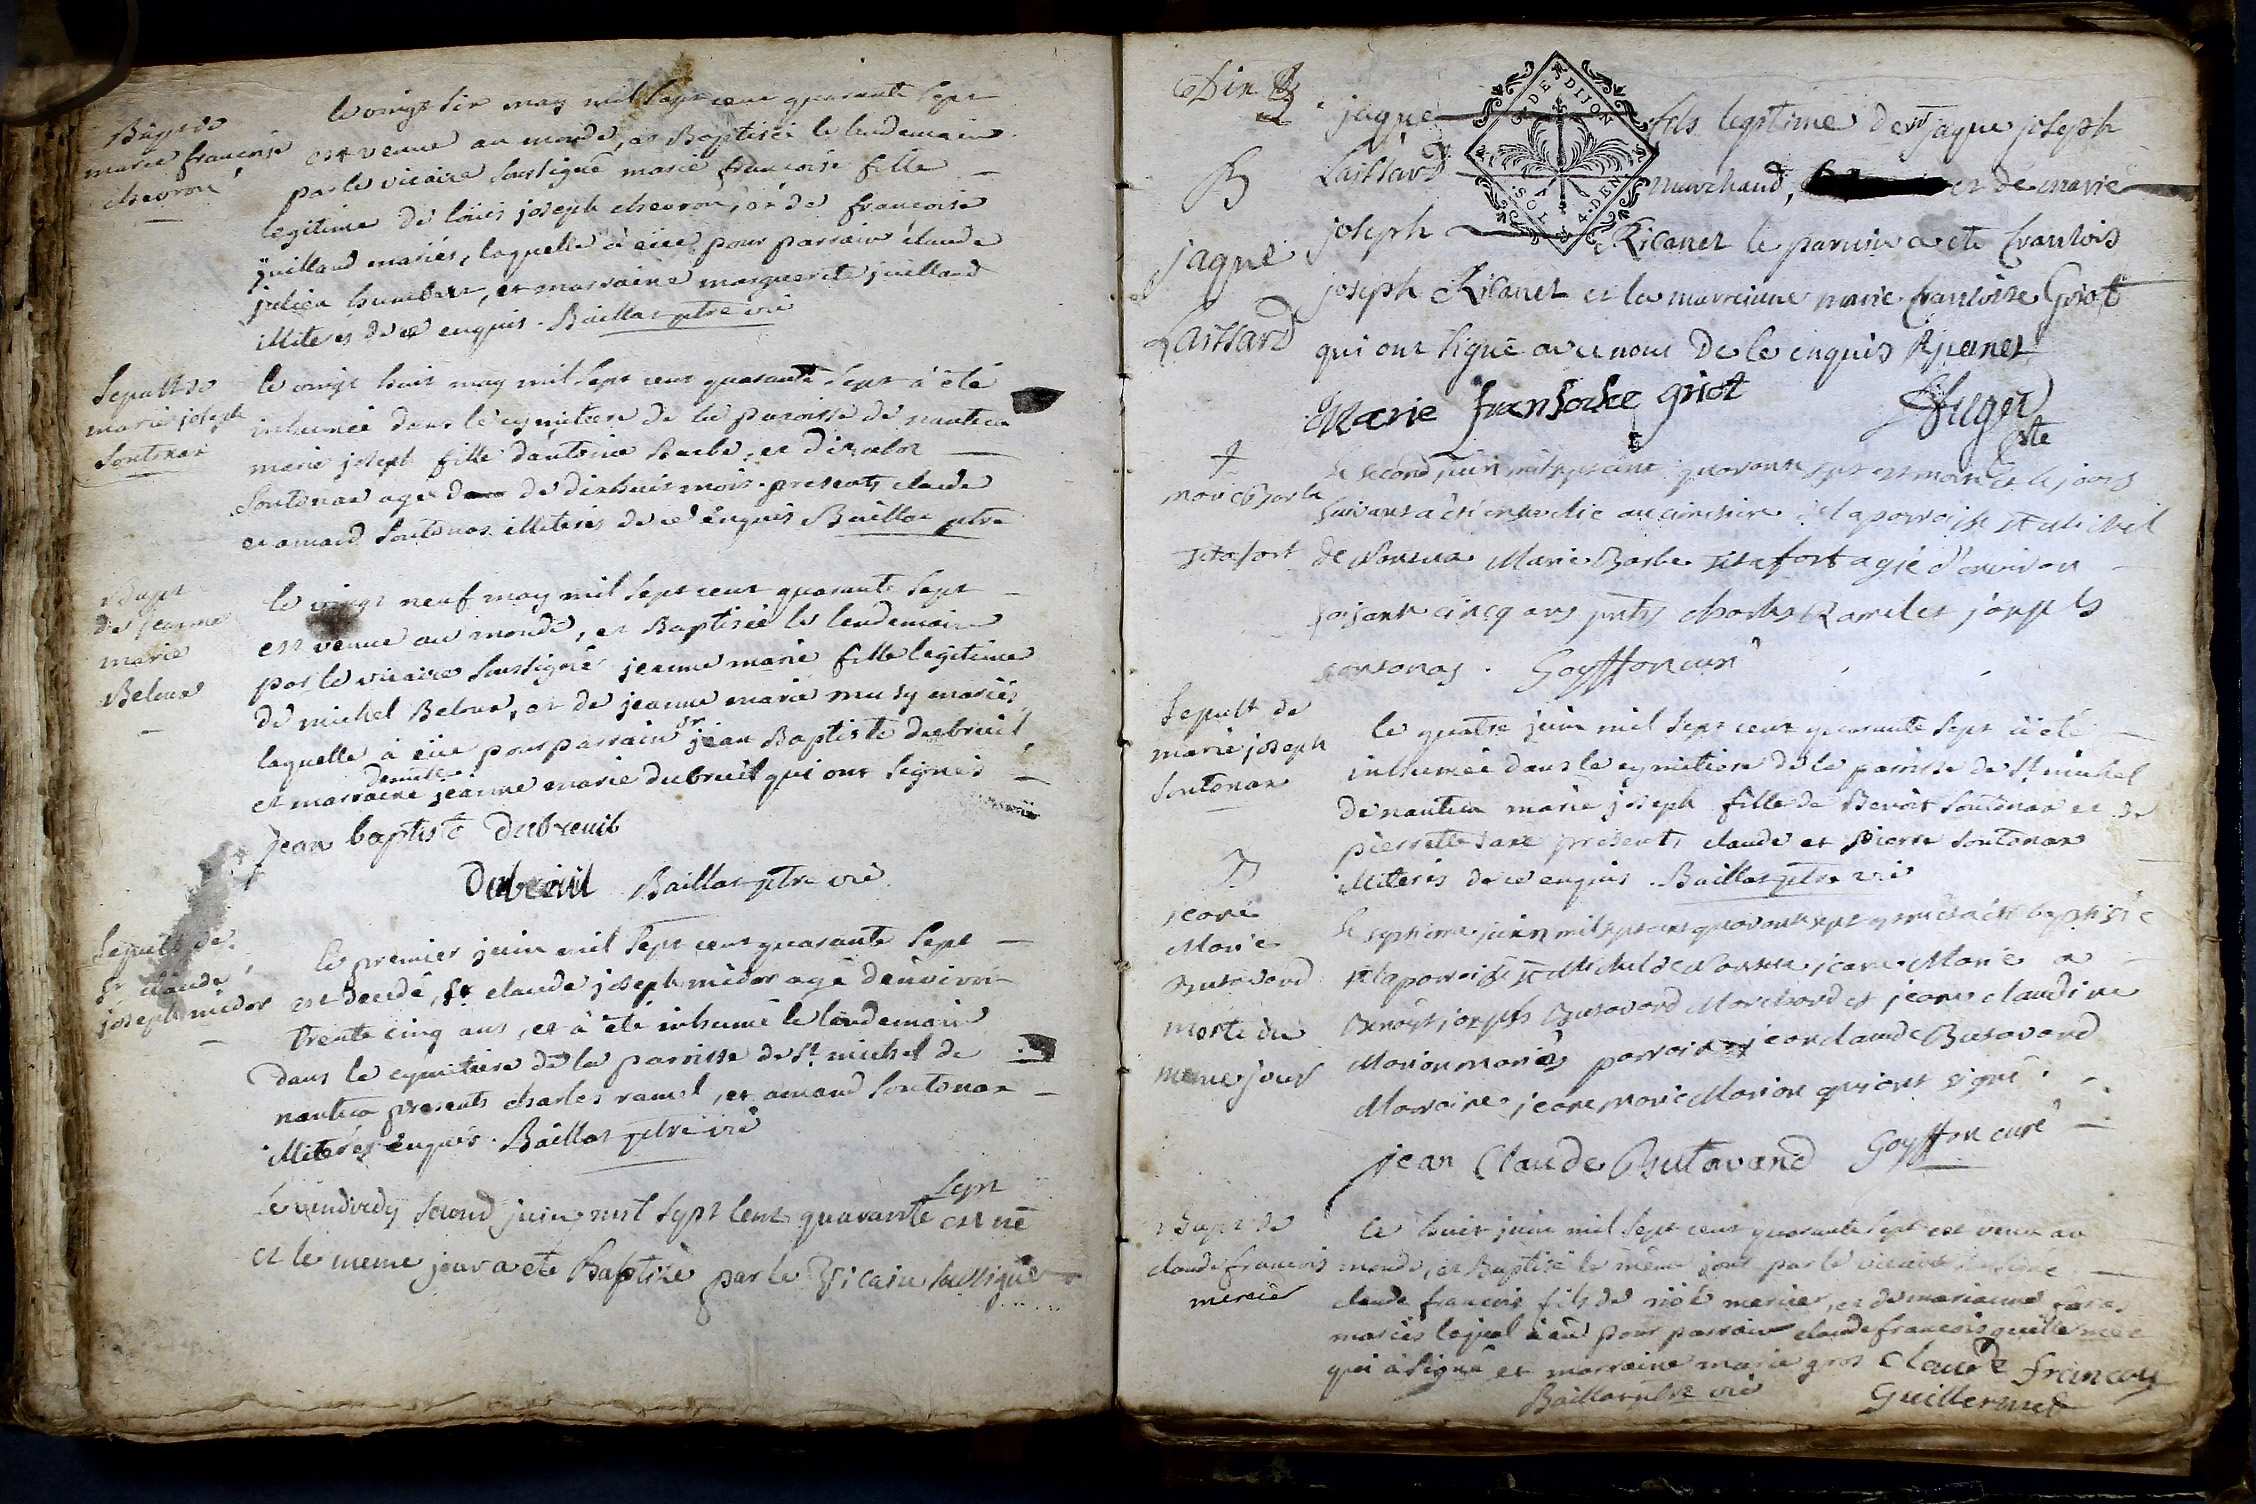 Bapt de
marie francoise
chevron
le vingt six may mil sept cent quarante sept
est venue au monde, et Baptisée le lendemain
par le vicaire soussigné marie francoise fille
legitime de loüis joseph chevron, et de francoise
juilland mariés, laquelle à eüe pour parrain claude
julien humbert, et marraine marguerite juilland
illiteres de ce enquis. Baillat ptre vic
Sepult de
marie joseph
Sontonax
le vingt huit may mil sept cent quarante sept à été
inhumée dans le cymitiere de la paroisse de nantua
marie joseph fille dantoine barbe, et
Sontonax agée de dixhuit mois. presents claude
et amard Sontonax illiteres de ce enquis Baillat ptre
Bapt
de jeanne
marie
Beloux
le vingt neuf may mil sept cent quarante sept
est venue au monde, et Baptisée le lendemain
par le vicaire soussigné jeanne marie fille legitime
de michel Beloux, et de jeanne marie musy mariés,
laquelle à eüe pour parrain sr jean Baptiste dubreüil,
et marraine demlle jeanne marie dubreüil qui ont signés
jean baptiste dubreuil
Dubreuil Baillat ptre vic
Sepult de
sr claude
joseph midor
le premier juin mil sept cent quarante sept
est decedé, sr claude joseph midor agé denviron
trente cinq ans, et à été inhumé le lendemain
dans le cymitiere de la paroisse de st michel de
nantua presents charles ramel, et amard Sontonax
illiteres enquis. Baillat ptre vic
Le vendredy second juin mil sept cent quarante sept est né
et le meme jour a ete Baptisé par le Vicaire sussigné
B
jaque
Laissard
jaque
Laissard
joseph
G. DE DIJON
fils legitime de sr jaque joseph
marchand, et de marie
Ricanet le parrain a ete francois
joseph Ricanet et la marreinne marie francoise Griot
qui ont signé avec nous de ce enquis
Marie fransoise griot
†
le second juin mil sept cent quarante sept est morte et le jour
suivant a été ensevelie au cimitiere de la parroisse st michel
de Nantua Marie Barbe agée d'environ
soisante cincq ans pnts charles Ramel et joseph
sontonas. Goyffon curé
Sepult de
marie joseph
Sontonax
le quatre juin mil sept cent quarante sept à été
inhumée dans le cymitiere de la paroisse de st michel
de nantua marie joseph fille de Benoit Sontonax et de
pierrette presents claude et pierre Sontonax
illiteres de ce enquis. Baillat ptre vic
B
jeane
Marie
Butavand
morte du
meme jour
le septieme juin mil sept cent quarante sept est née et a été baptisée
à la parroisse st Michel de Nantua jeane Marie a
Benoyt joseph Butavand Marchand et jeane claudine
Marion mariés parrain jean claude Butavand
Marraine jeane marie Marion qui ont signé.
jean Claude Butavand Goyffon curé
Bapt de
claude francois
mercier
le huit juin mil sept cent quarante sept est venu au
monde, et Baptisé le même jour par le vicaire soussigné
claude francois fils de mercier, et de marianne
mariés lequel à eü pour parrain claude francois guillermet
qui à signé et marraine marie gros Claude francois
Baillat ptre vic Guillermet